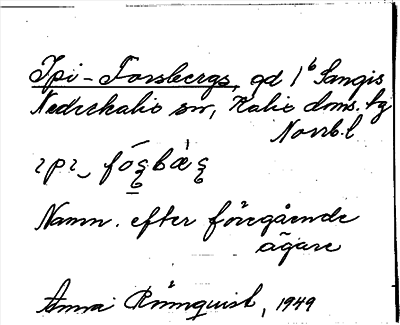 Ipi-Forsbergs, gd 1⁶ Sangis
Nederkalix sn, Kalix doms. bg
Norrb.l
Namn. efter föregående
ägare
Anna Rönnquist, 1949